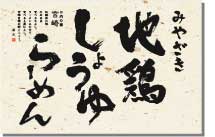 みやざき
地鶏
しょうゆ
らーめん
宮崎